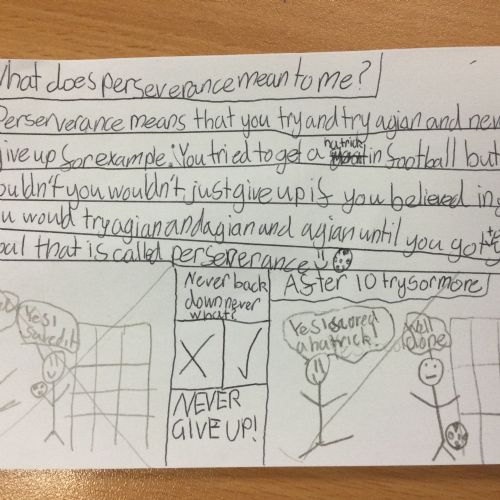 What does perseverance mean to me?
Perserverance means that you try and try agian and never
give up for example: You tried to get a hatrick in football but
couldn't you wouldn't just give up if you believed in
you would try agian and agian and agian until you got the
goal that is called perseverance
Never back
down never
what?
NEVER
GIVE UP!
After 10 trys or more
Yes I
saved it
Yes I scored
a hatrick!
Well
done